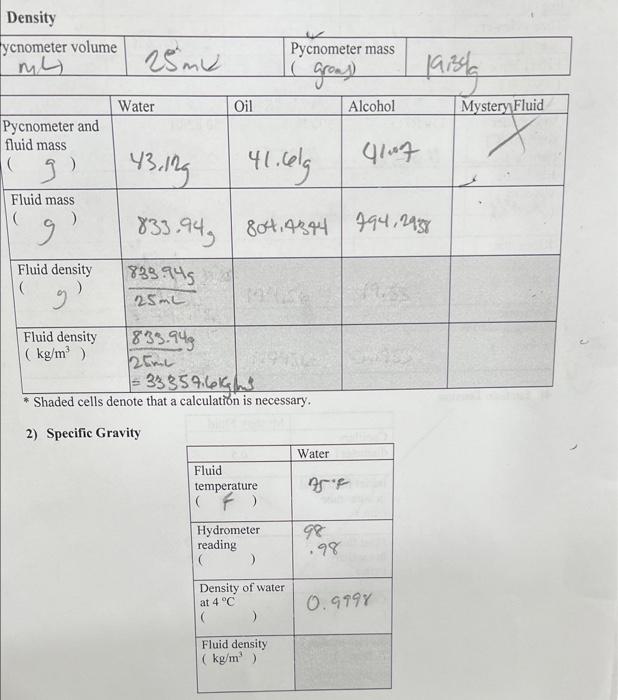 Density
ycnometer volume
mL)
25mL
Pycnometer mass
(grams)
19.34g
Water Oil Alcohol Mystery Fluid
Pycnometer and
fluid mass
( g )
43.12g 41.61g 41.07
Fluid mass
( g )
833.94g 804.4394 794.2938
Fluid density
( g )
833.94g
25mL
Fluid density
( kg/m³ )
833.94g
25mL
= 33357.6kg/m3
* Shaded cells denote that a calculation is necessary.
2) Specific Gravity
Water
Fluid
temperature
( F )
75°F
Hydrometer
reading
( )
98
.98
Density of water
at 4 °C
( )
0.9998
Fluid density
( kg/m³ )